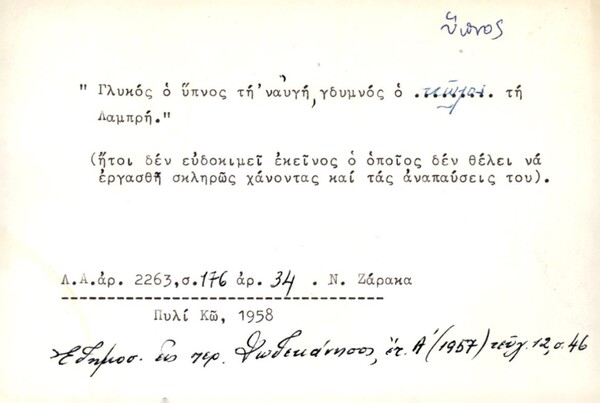 ὕπνος
" Γλυκός ὁ ὕπνος τή 'ναυγή, γδυμνός ὁ τή
Λαμπρή."
(ἤτοι δέν εὐδοκιμεῖ ἐκεῖνος ὁ ὁποῖος δέν θέλει νά
ἐργασθῆ σκληρῶς χάνοντας καί τάς ἀναπαύσεις του).
Λ.Α.ἀρ. 2263,σ.176 ἀρ. 34 . Ν. Ζάρακα
Πυλί Κῶ, 1958
Ἐδημοσ. εἰς περ. Δωδεκάνησος, ἔτ. Α' (1957) τεῦχ. 12, σ. 46